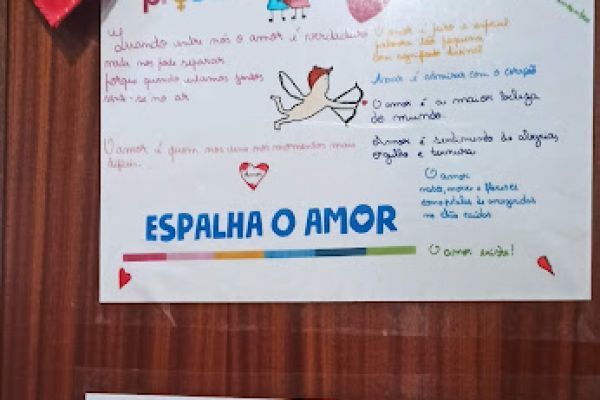 Quando entre nós o amor é verdadeiro
nada nos pode separar
porque quando estamos juntos
sente-se no ar
O amor é quem nos une nos momentos mais
difíceis.
Amor
O amor é puro e especial
palavra tão pequena
com significado
Amar é admirar com o coração
O amor é a maior beleza
do mundo.
Amor é sentimento de alegria,
orgulho e ternura.
O amor
nasce, morre e floresce
como pétalas de margaridas
no chão caídas
O amor existe!
ESPALHA O AMOR